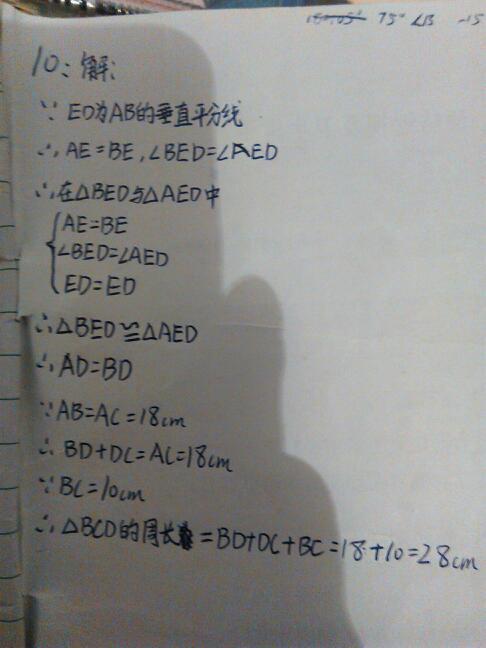 75° ∠B -15
10：解：
∵ ED为AB的垂直平分线
∴ AE=BE，∠BED=∠AED
∴在△BED与△AED中
AE=BE
∠BED=∠AED
ED=ED
∴△BED≌△AED
∴AD=BD
∵AB=AC=18cm
∴ BD+DC=AC=18cm
∵BC=10cm
∴△BCD的周长=BD+DC+BC=18+10=28cm